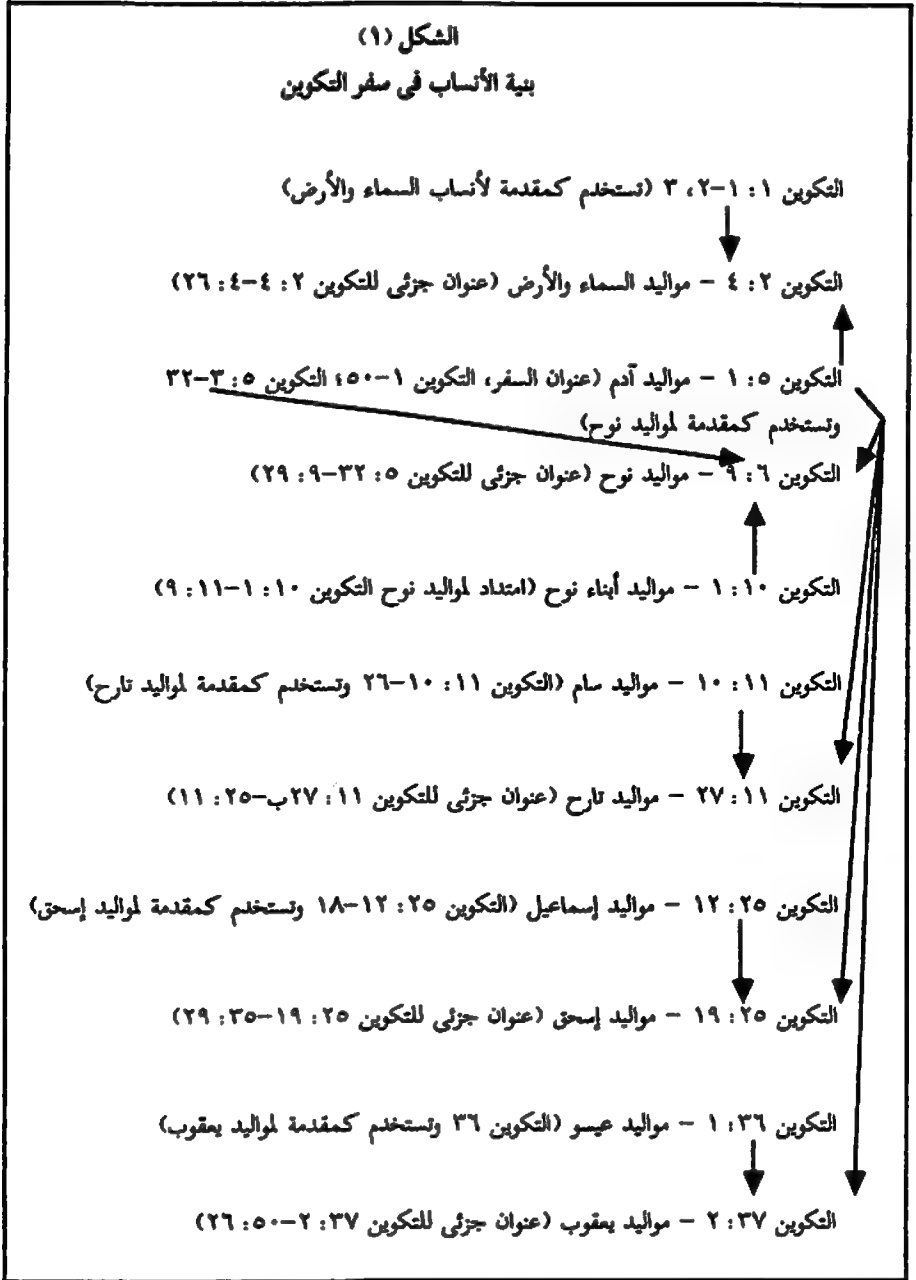 الشكل (١)
بنية الأنساب فى سفر التكوين
التكوين ١ : ١-٢، ٣ (تستخدم كمقدمة لأنساب السماء والأرض)
التكوين ٢ : ٤ - مواليد السماء والأرض (عنوان جزئى للتكوين ٢ : ٤-٤ : ٢٦)
التكوين ٥ : ١ - مواليد آدم (عنوان السفر، التكوين ١-٥٠؛ التكوين ٥ : ٣-٣٢
وتستخدم كمقدمة لمواليد نوح)
التكوين ٦ : ٩ - مواليد نوح (عنوان جزئى للتكوين ٥ : ٣٢-٩ : ٢٩)
التكوين ١٠ : ١ - مواليد أبناء نوح (امتداد لمواليد نوح التكوين ١٠ : ١-١١ : ٩)
التكوين ١١ : ١٠ - مواليد سام (التكوين ١١ : ١٠-٢٦ وتستخدم كمقدمة لمواليد تارح)
التكوين ١١ : ٢٧ - مواليد تارح (عنوان جزئى للتكوين ١١ : ٢٧ب-٢٥ : ١١)
التكوين ٢٥ : ١٢ - مواليد إسماعيل (التكوين ٢٥ : ١٢-١٨ وتستخدم كمقدمة لمواليد إسحق)
التكوين ٢٥ : ١٩ - مواليد إسحق (عنوان جزئى للتكوين ٢٥ : ١٩-٣٥ : ٢٩)
التكوين ٣٦ : ١ - مواليد عيسو (التكوين ٣٦ وتستخدم كمقدمة لمواليد يعقوب)
التكوين ٣٧ : ٢ - مواليد يعقوب (عنوان جزئى للتكوين ٣٧ : ٢-٥٠ : ٢٦)